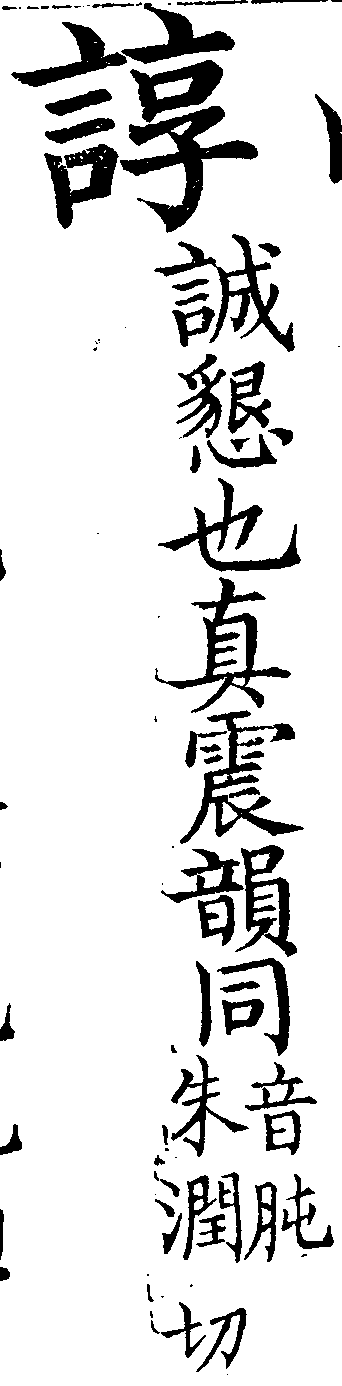 諄
誠懇也真震韻同
音肫
朱潤切